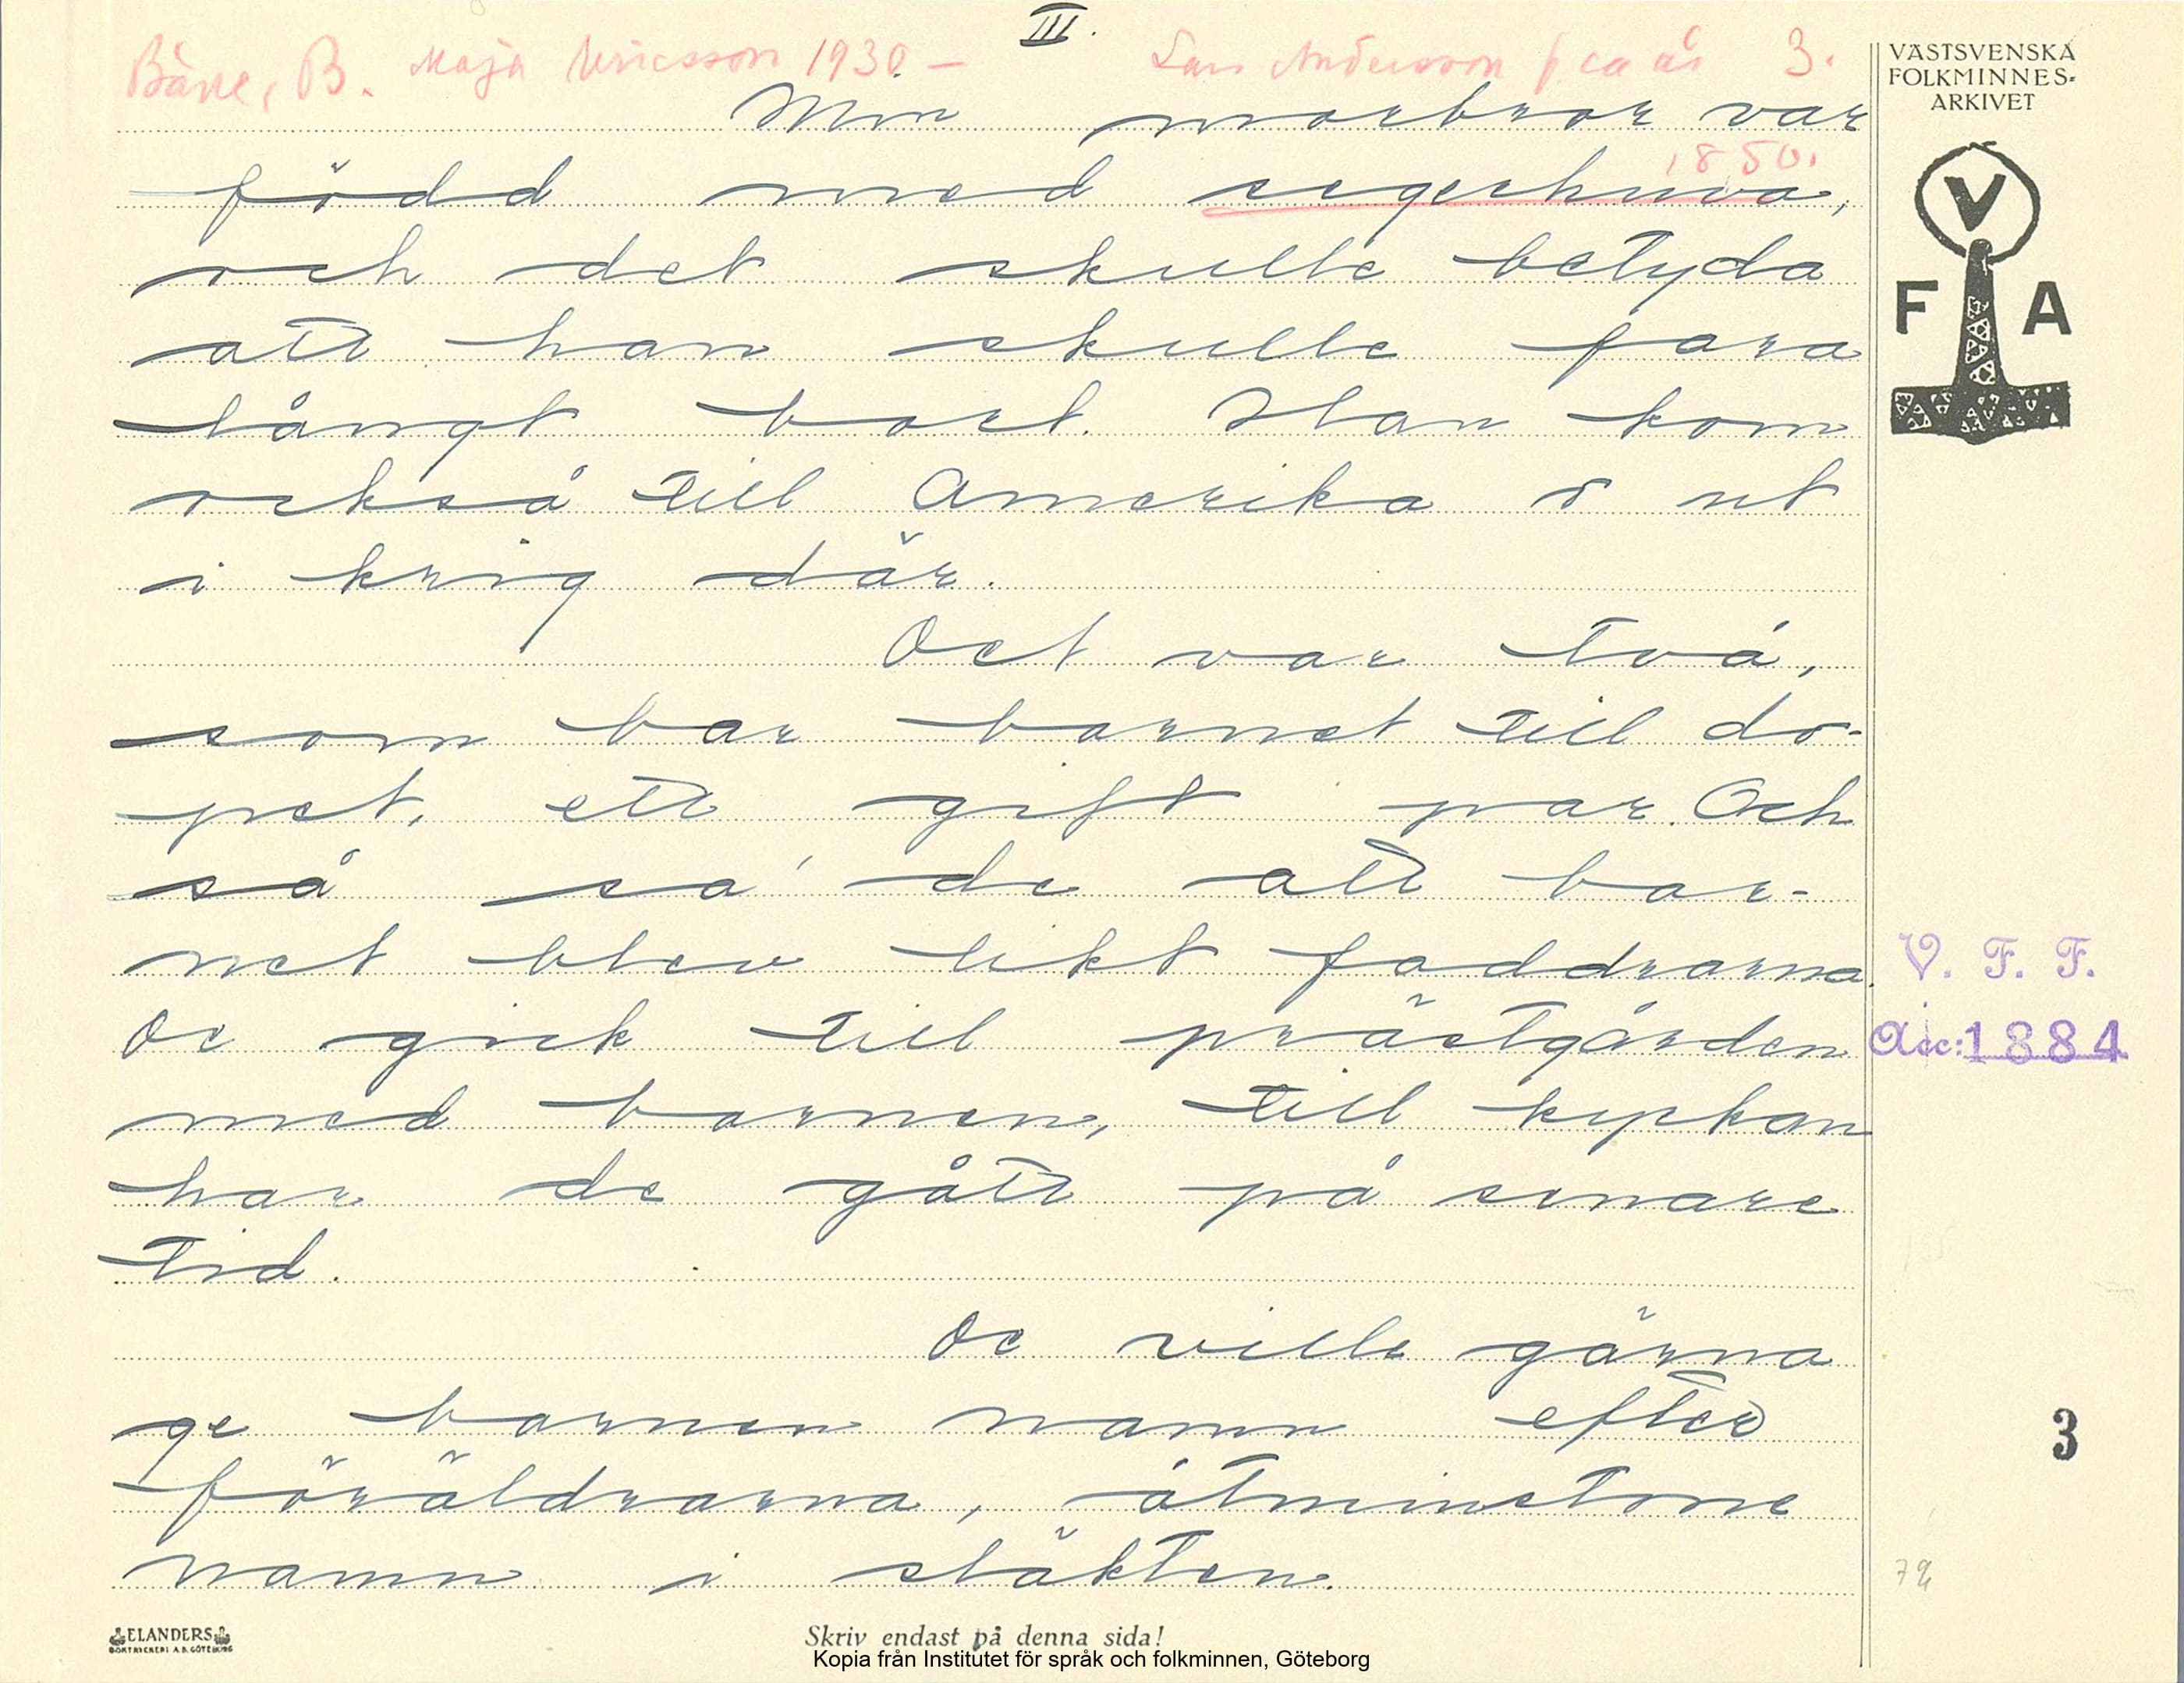 III.
Bäve, B. Maja Ericsson 1930 - Lars Andersson f. ca år 3.
1850.
Min morbror var
född med segerhuva,
och det skulle betyda
att han skulle fara
långt bort. Han kom
också till Amerika o ut
i krig där.
Det var två,
som bar barnet till do-
pet, ett gift par. Och
så sa' de att bar-
net blev likt faddrarna.
De gick till prästgården
med barnen, till kyrkan
har de gått på senare
tid.
De ville gärna
ge barnen namn efter
föräldrarna, åtminstone
namn i släkten.
VÄSTSVENSKA
FOLKMINNES-
ARKIVET
V
F A
V. F. F.
Acc: 1884
3
ELANDERS
BOKTRYCKERI A.B. GÖTEBORG
Skriv endast på denna sida!
Kopia från Institutet för språk och folkminnen, Göteborg